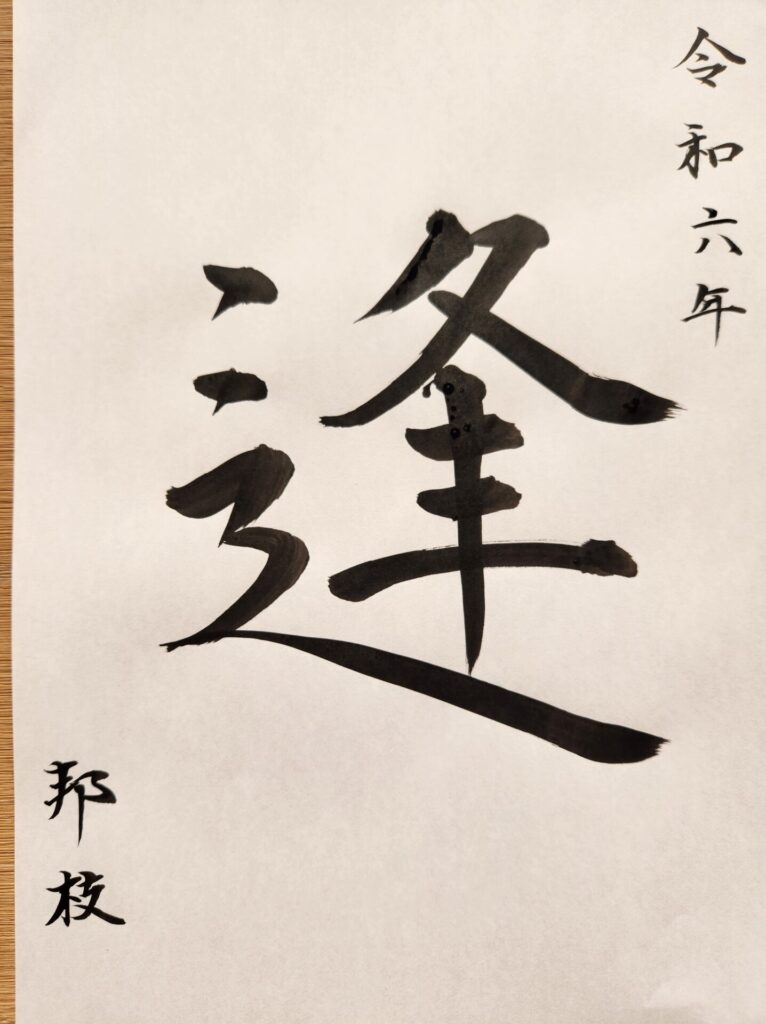 令和六年
逢
邦枝